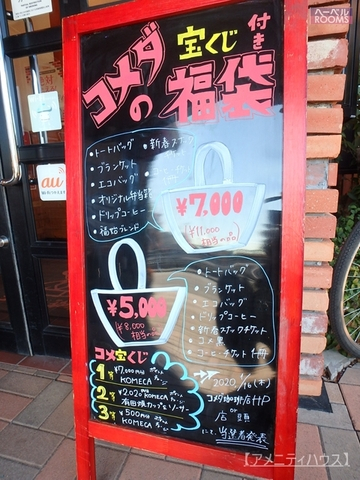 ヘーベル
ROOMS
コメダの
宝くじ付き
福袋
au
・トートバッグ
・ブランケット
・エコバッグ
・オリジナル弁当箱
・ドリップコーヒー
・福福ブレンド
・新春スナック
¥7,000
¥11,000
相当の品
¥5,000
¥8,000
相当の品
・トートバッグ
・ブランケット
・エコバッグ
・ドリップコーヒー
・新春スナックチケット
・コメ黒
・コーヒーチケット1冊
コメ宝くじ
1等 ¥7,000円分
KOMECA
2等 ¥2,020円分
KOMECA
有田焼カップ&ソーサー
3等 ¥500円分
KOMECA
2020 1/16(木)
コメダ珈琲店HP
or
店頭
にて、当選者発表
【アメニティハウス】